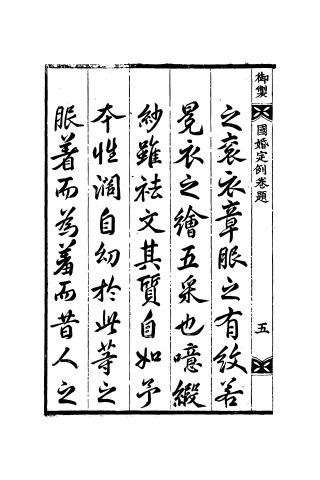 御製
國婚定例卷題
五
之衮衣章服之有紋若
冕衣之繪五采也噫緞
紗雖祛文其質自如予
本性濶自幼於此等之
服着而為着而昔人之